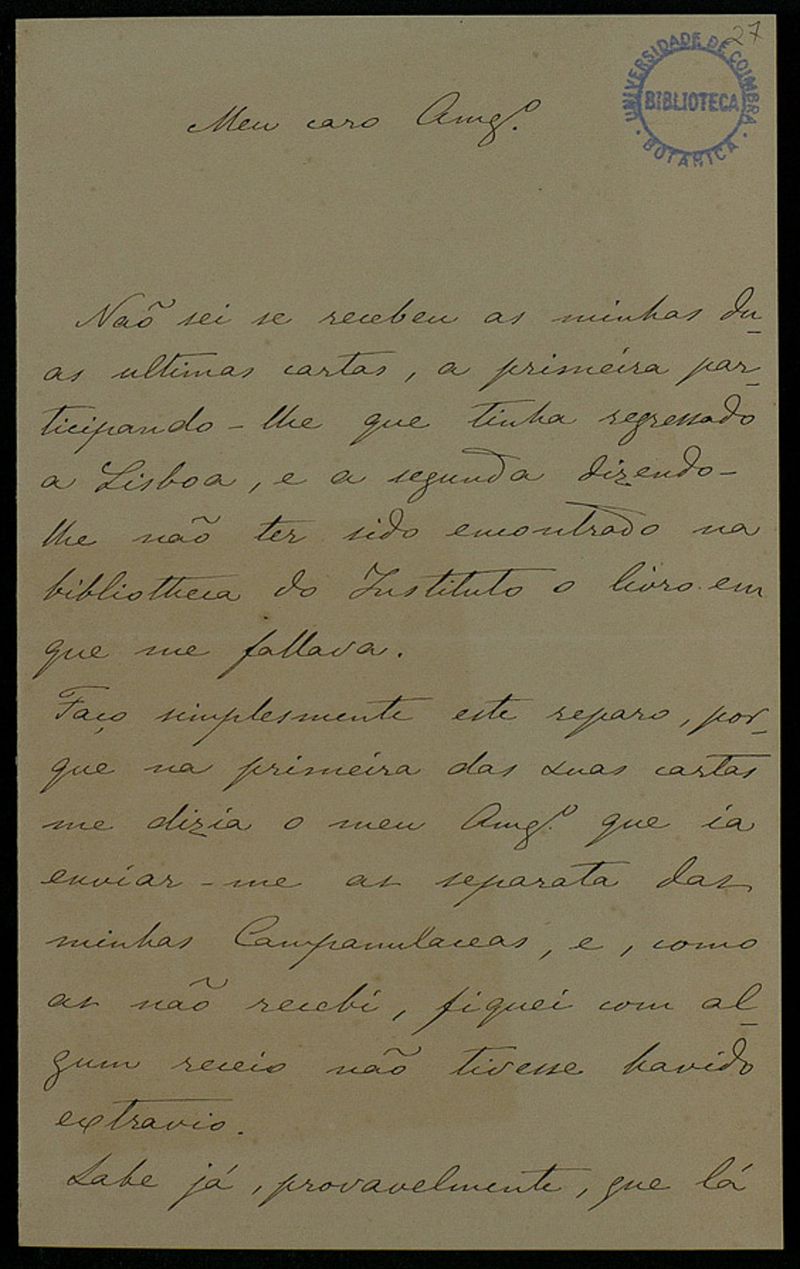 27
UNIVERSIDADE DE COIMBRA
BIBLIOTECA
BOTANICA
Meu caro Amg.º
Naõ sei se recebeu as minhas du-
as ultimas cartas, a primeira par-
ticipando-lhe que tinha regressado
a Lisboa, e a segunda dizendo-
lhe não ter sido encontrado na
bibliotheca do Instituto o livro em
que me fallava.
Faço simplesmente este reparo, por-
que na primeira das suas cartas
me dizia o meu Amg.º que ia
enviar-me as separata das
minhas Campanulaceas, e, como
as não recebi, fiquei com al-
gum receio não tivesse havido
extravio.
Sabe já, provavelmente, que lá